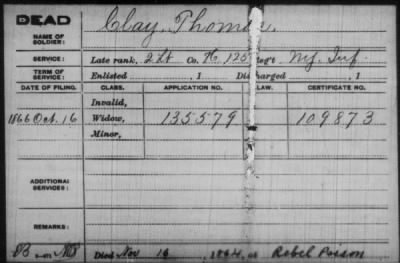 DEAD
NAME OF SOLDIER:
Clay, Thomas.
SERVICE:
Late rank, 2 Lt Co. K, 125 Reg't NY. Inf.
TERM OF SERVICE:
Enlisted , 1 Discharged , 1
DATE OF FILING. CLASS. APPLICATION NO. LAW. CERTIFICATE NO.
Invalid,
1866 Oct. 16 Widow, 135579 109873
Minor,
ADDITIONAL SERVICES:
REMARKS:
Died Nov 16 , 1864, at Rebel Prison